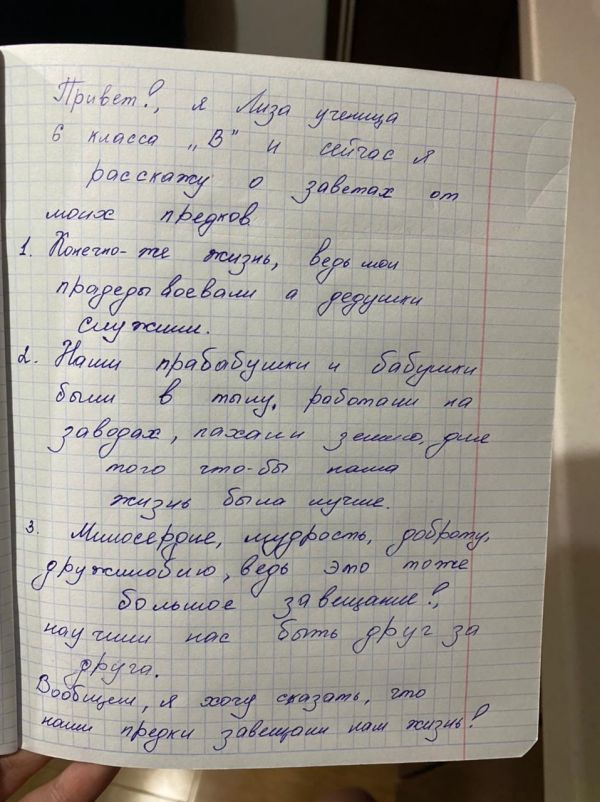 Привет!, я Лиза ученица
6 класса „В" и сейчас я
расскажу о заветах от
моих предков
1. Конечно-же жизнь, ведь мои
прадеды воевали а дедушки
служили.
2. Наши прабабушки и бабушки
были в тылу, работали на
заводах, пахали землю, для
того что-бы наша
жизнь была лучше.
3. Милосердие, мудрость, доброту,
дружилюбию, ведь это тоже
большое завещание!,
научили нас быть друг за
друга.
Вообщем, я хочу сказать, что
наши предки завещали нам жизнь!